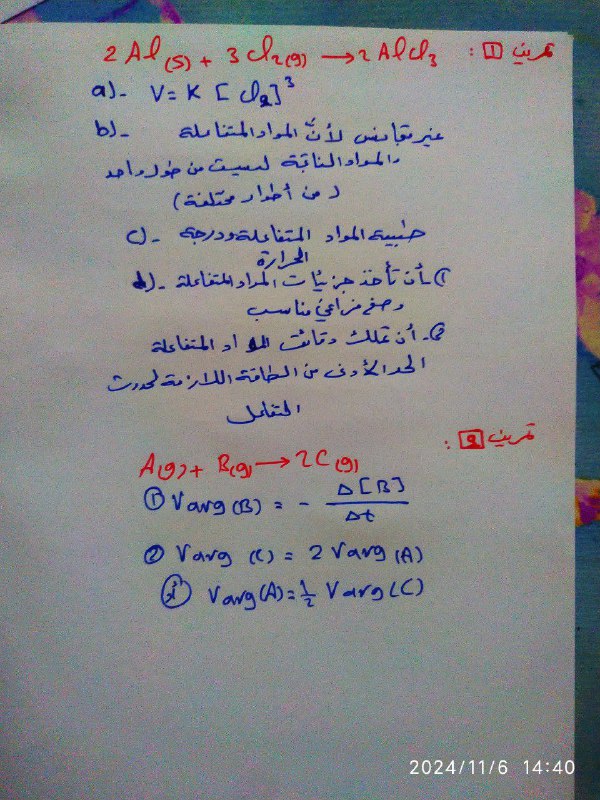 تمرين 1 : 2 Al(s) + 3 Cl2(g) → 2 AlCl3
a)- V = K [Cl2]³
b)- غير متجانس لأنّ المواد المتفاعلة
والمواد الناتجة ليست من طور واحد
(من أطوار مختلفة)
c)- طبيعة المواد المتفاعلة ودرجة
الحرارة
d)- ①- أن تأخذ جزيئات المواد المتفاعلة
وضع فراغي مناسب
②- أن تملك دقائق المواد المتفاعلة
الحد الأدنى من الطاقة اللازمة لحدوث
التفاعل
تمرين 2 :
A(g) + B(g) → 2C(g)
① Varg(B) = - Δ[B] / Δt
② Varg (C) = 2 Varg(A)
أو Varg(A) = 1/2 Varg(C)
2024/11/6 14:40